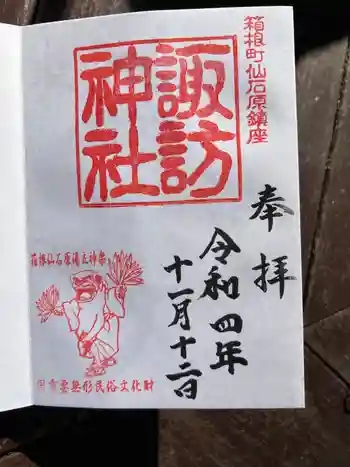 箱根町仙石原鎮座
奉拝
諏訪
神社
令和四年
十一月十二日
箱根仙石原湯立神楽
国重要無形民俗文化財